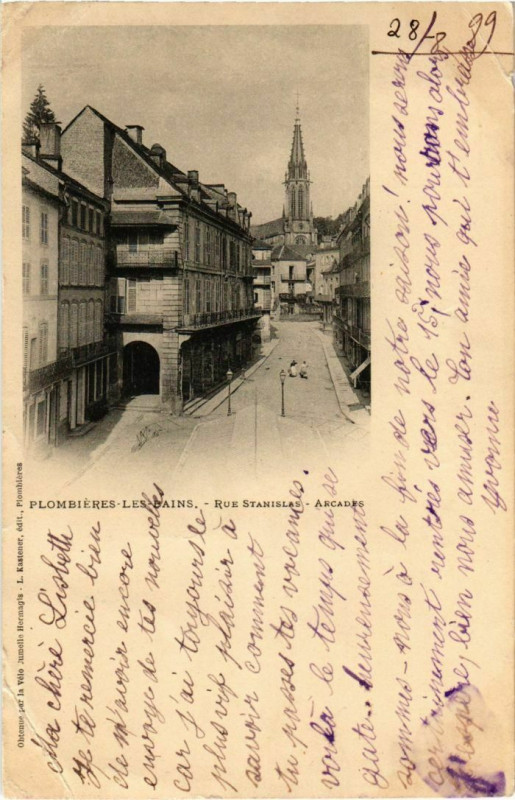 28/8 99
PLOMBIÈRES-LES-BAINS. - RUE STANISLAS - ARCADES
Obtenue par la Vélo Jumelle Hermagis - L. Kastener, édit., Plombières
Ma chère Lisbeth
Je te remercie bien
de m'avoir encore
envoyé de tes nouvelles
car j'ai toujours le
plus vif plaisir à
savoir comment
tu passes tes vacances.
voilà le temps qui se
gâte. heureusement
sommes-nous à la fin de notre saison! nous serons
certainement rentrés vers le 15, nous pourrons alors
bien nous amuser. Ton amie qui t'embrasse
Yvonne